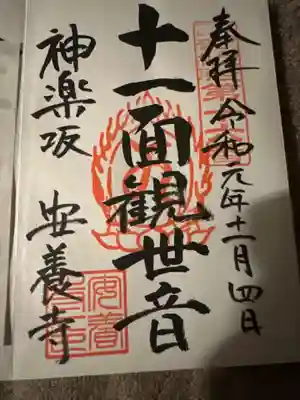 奉拝 令和元年十一月四日
十一面観世音
神楽坂 安養寺